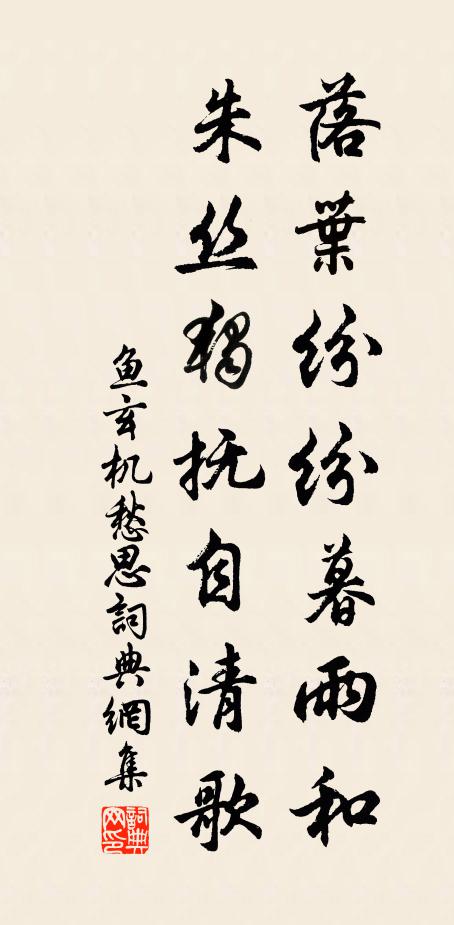 落葉紛紛暮雨和
朱丝獨抚自清歌
鱼玄机愁思詞典網集
詞典
网印